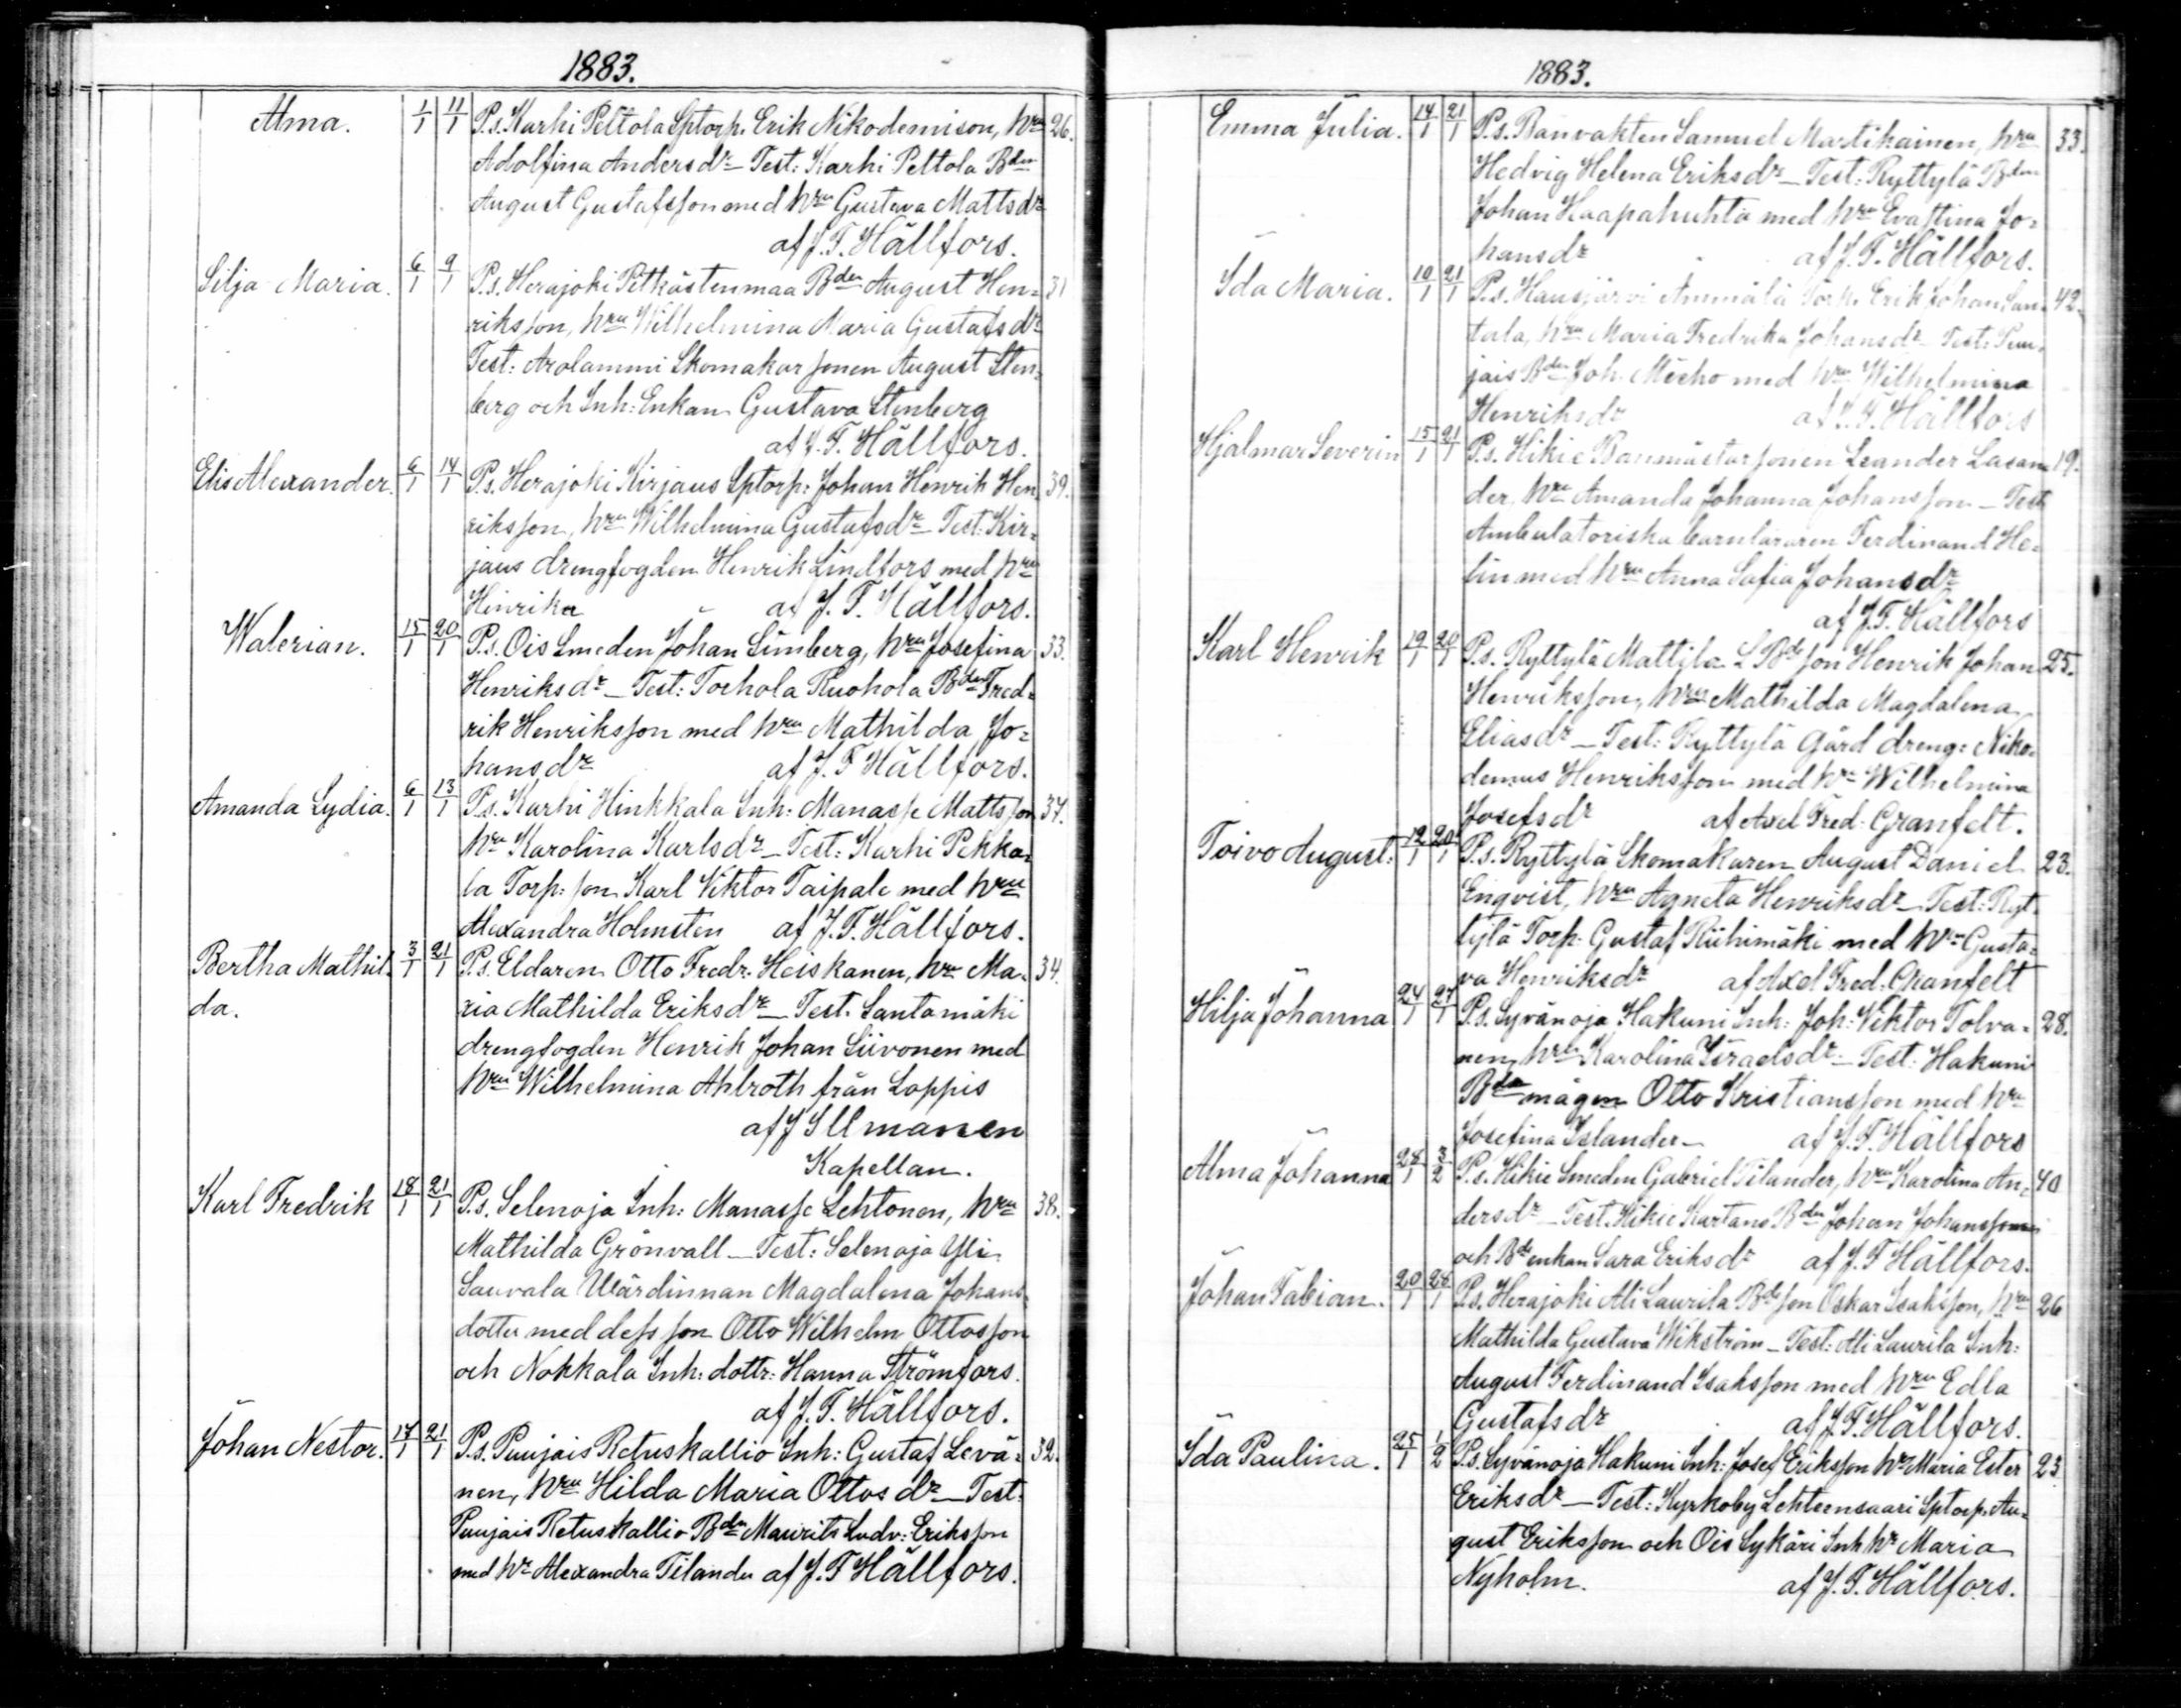 1883.
Alma. 1/1 11/1 P.s. Karhi Peltola Sptorp. Erik Nikodemison, hru 26.
Adolfina Andersdr – Test: Karhi Peltola Bden
August Gustafsson med hru Gustava Mattsdr
af J. F. Hällfors.
Silja Maria. 6/1 9/1 P.s. Herajoki Petkästenmaa Bden August Hen= 31
riksson, hru Wilhelmina Maria Gustafsdr
Test: Arolammi Skomakarsonen August Sten=
berg och Inh: Enkan Gustava Stenberg
af J. F. Hällfors.
Elis Alexander. 6/1 14/1 P.s. Herajoki Kirjaus Sptorp: Johan Henrik Hen 39.
riksson, hru Wilhelmina Gustafsdr – Test: Kir=
jaus drengfogden Henrik Lindfors med hru
Henrika af J. F. Hällfors.
Walerian. 15/1 20/1 P.s. Ois Smeden Johan Limberg, hru Josefina 33.
Henriksdr – Test: Tochola Ruohola Bden Fred=
rik Henriksson med hru Mathilda Jo=
hansdr af J. F Hällfors.
Amanda Lydia. 6/1 13/1 P.s. Karhi Hinkkala Inh: Manasse Mattsson 37.
hru Karolina Karlsdr – Test: Karhi Pekka=
la Torp: son Karl Viktor Taipale med hru
Alexandra Holmsten af J. F. Hällfors.
Bertha Mathil= 3/1 21/1 P.s. Eldaren Otto Fredr. Heiskanen, hru Ma= 34.
da. ria Mathilda Eriksdr – Test. Santamäki
drengfogden Henrik Johan Siivonen med
hru Wilhelmina Ahlroth från Loppis
af J Illmanen
Kapellan.
Karl Fredrik 18/1 21/1 P.s. Selenoja Inh: Manasse Lehtonen, hru 38.
Mathilda Grönvall – Test: Selenoja Yli
Sauvala Wärdinnan Magdalena Johans
dotter med dess son Otto Wilhelm Ottosson
och Nokkala Inh: dottr: Hanna Strömfors.
af J. F. Hällfors.
Johan Nestor. 17/1 21/1 P.s. Puujais Retuskallio Inh: Gustaf Levä= 32.
nen, hru Hilda Maria Ottosdr – Test.
Puujais Retuskallio Bden Maurits Ludv: Eriksson
med hr Alexandra Tilander af J. F Hällfors.
1883.
Emma Julia. 14/1 21/1 P.s. Banvakten Samuel Martikainen, hru 33.
Hedvig Helena Eriksdr – Test: Ryttylä Bden
Johan Haapahuhta med hru Evastina Jo=
hansdr af J. F. Hällfors.
Ida Maria. 10/1 21/1 P.s. Hausjärvi Ammälä Torp. Erik Johan San= 42.
tala, hru Maria Fredrika Johansdr – Test: Puu=
jais Bden Joh. Mecho med hru Wilhelmina
Henriksdr af J. F. Hällfors
Hjalmar Severin 15/1 21/1 P.s. Hikie Banmästarsonen Leander Lasan 19.
der, hru Amanda Johanna Johansson – Test
Ambulatoriska barnläraren Ferdinand He=
lin med hru Anna Sofia Johansdr
af J. F. Hällfors
Karl Henrik 19/1 20/1 P.s. Ryttylä Mattila L Bde son Henrik Johan 25.
Henriksson, hru Mathilda Magdalena
Eliasdr – Test: Ryttylä Gård dreng: Niko=
demus Henriksson med hru Wilhelmina
Josefsdr af Axel Fred. Granfelt.
Toivo August: 12/1 20/1 P.s. Ryttylä Skomakaren August Daniel 23.
Enqvist, hru Agneta Henriksdr – Test: Ryt=
tylä Torp: Gustaf Riihimäki med hru Gusta=
va Henriksdr af Axel Fred. Granfelt
Hilja Johanna 24/1 27/1 P.s. Syvänoja Hakuni Inh: Joh: Viktor Tolva= 28.
nen, hru Karolina Israelsdr – Test: Hakuni
Bde mågen Otto Kristiansson med hru
Josefina Islander – af J. F. Hällfors
Alma Johanna 28/1 3/2 P.s. Hikie Smeden Gabriel Tilander, hru Karolina An= 40
dersdr – Test. Hikie Kartano Bden Johan Johansson
och Bde enkan Sara Eriksdr af J. F Hällfors.
Johan Fabian. 20/1 28/1 P.s. Herajoki Ali Laurila Bde son Oskar Isaksson, hru 26
Mathilda Gustava Wikström – Test: Ali Laurila Inh:
August Ferdinand Isaksson med hru Edla
Gustafsdr af J. F. Hällfors.
Ida Paulina. 25/1 1/2 P.s. Syvänoja Hakuni Inh: Josef Eriksson hr Maria Ester 23
Eriksdr – Test: Kyrkoby Lehteensaari Sptorp. Au=
gust Eriksson och Ois Sykäri Inh hr Maria
Nyholm. af J. F. Hällfors.